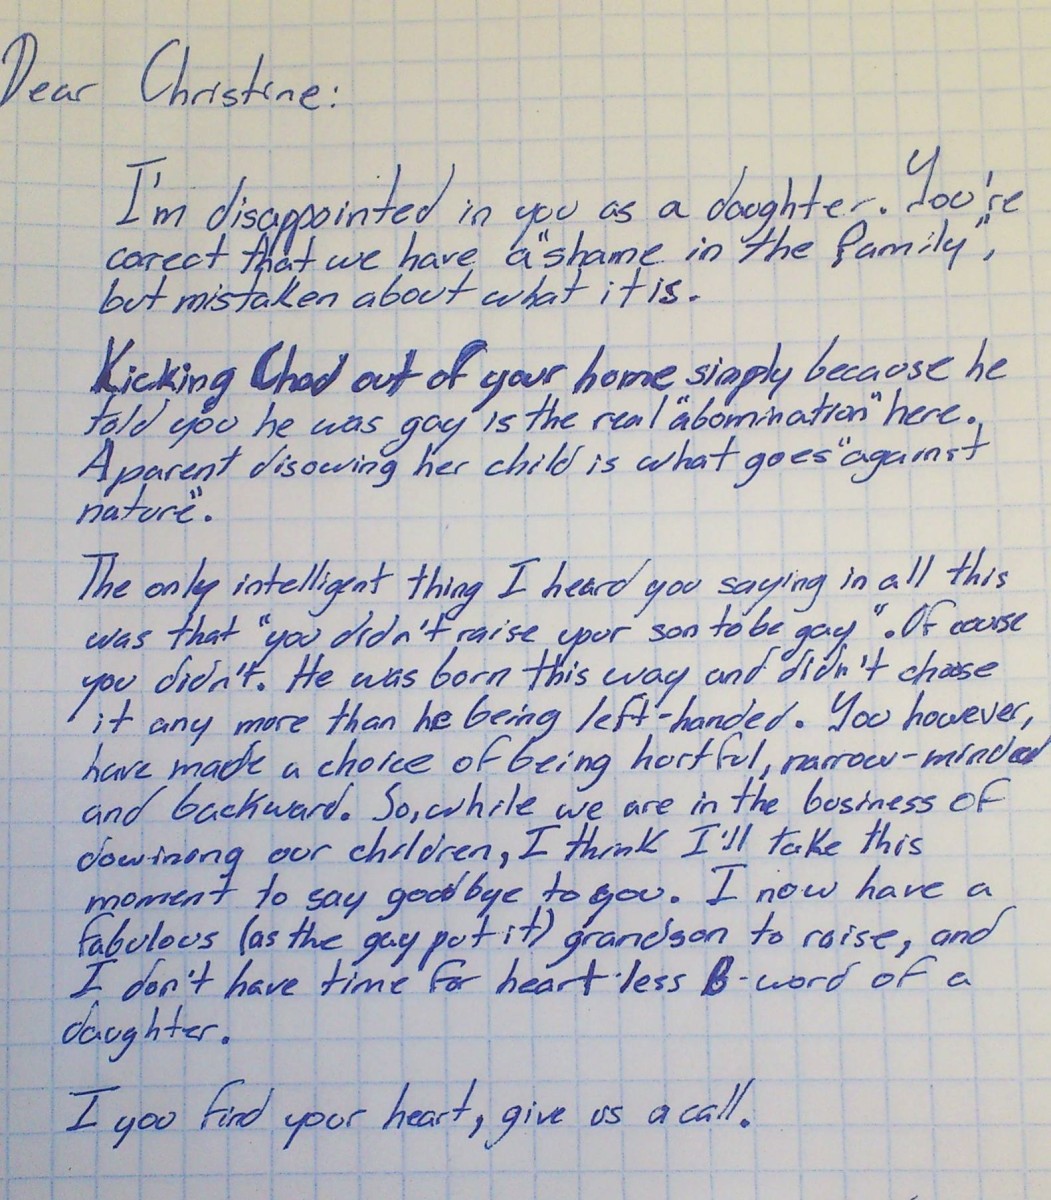 Dear Christine:
I'm disappointed in you as a daughter. You're
corect that we have a "shame in the family",
but mistaken about what it is.
Kicking Chad out of your home simply because he
told you he was gay is the real "abomination" here.
A parent disowing her child is what goes "against
nature".
The only intelligent thing I heard you saying in all this
was that "you didn't raise your son to be gay". Of course
you didn't. He was born this way and didn't choose
it any more than he being left-handed. You however,
have made a choice of being hurtful, narrow-minded
and backward. So, while we are in the business of
our children, I think I'll take this
moment to say goodbye to you. I now have a
fabulous (as the gay put it) grandson to raise, and
I don't have time for heart-less B-word of a
daughter.
I you find your heart, give us a call.